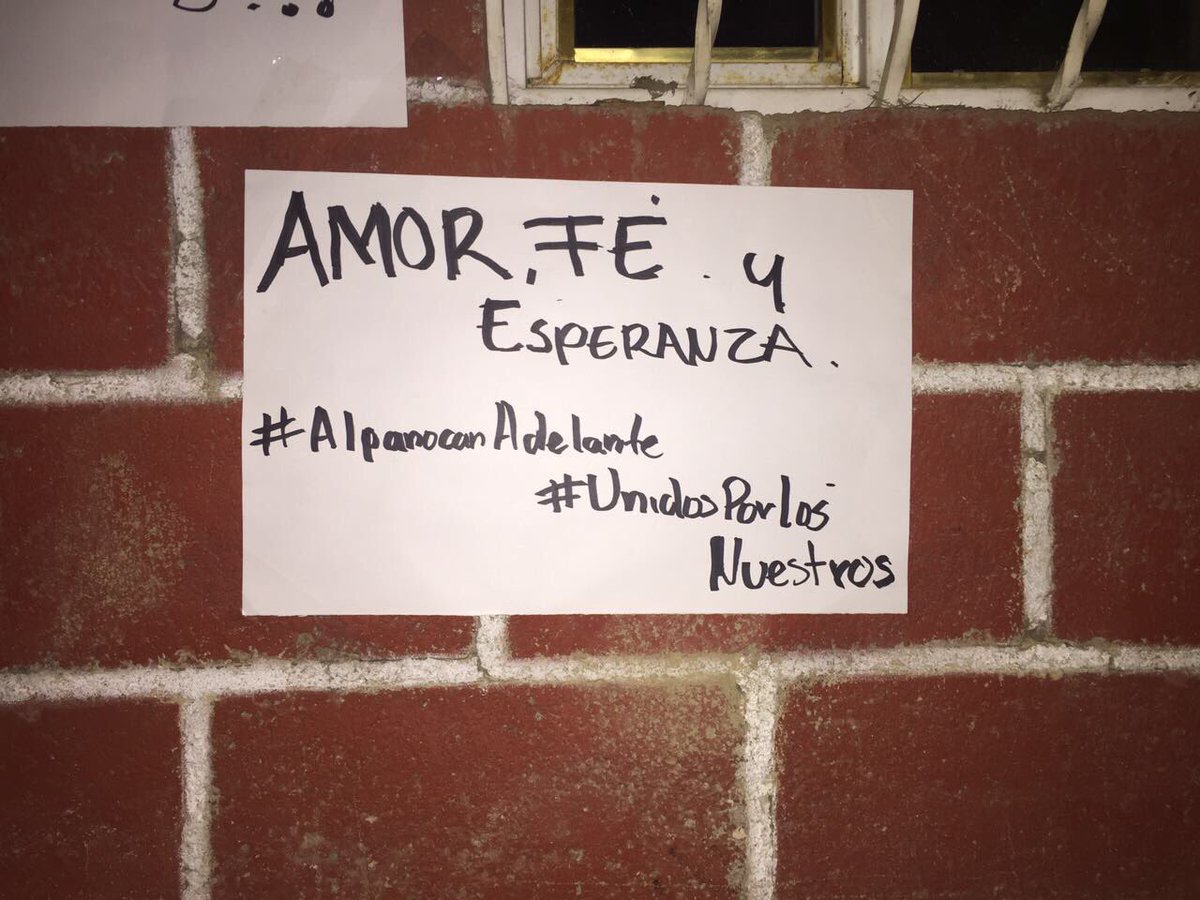 AMOR, FÉ. y
ESPERANZA.
#AlpanocanAdelante
#UnidosPorlos
Nuestros